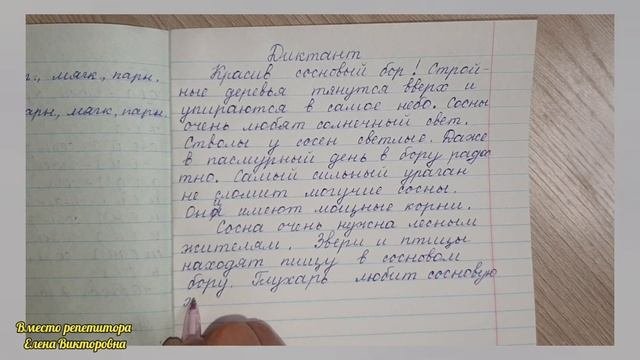 г., мягк., парн.
арн., мягк., парн.
Диктант
Красив сосновый бор! Строй-
ные деревья тянутся вверх и
упираются в самое небо. Сосны
очень любят солнечный свет.
Стволы у сосен светлые. Даже
в пасмурный день в бору радос
тно. Самый сильный ураган
не сломит могучие сосны.
Они имеют мощные корни.
Сосна очень нужна лесным
жителям. Звери и птицы
находят пищу в сосновом
бору. Глухарь любит сосновую
х
Вместо репетитора
Елена Викторовна